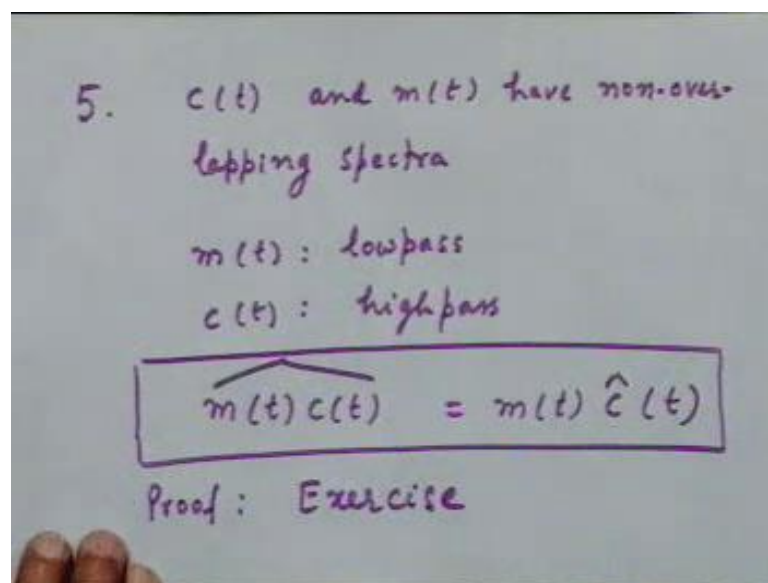 5. c(t) and m(t) have non-over-
lapping spectra
m(t) : lowpass
c(t) : highpass
\widehat{m(t) c(t)} = m(t) ĉ(t)
Proof : Exercise